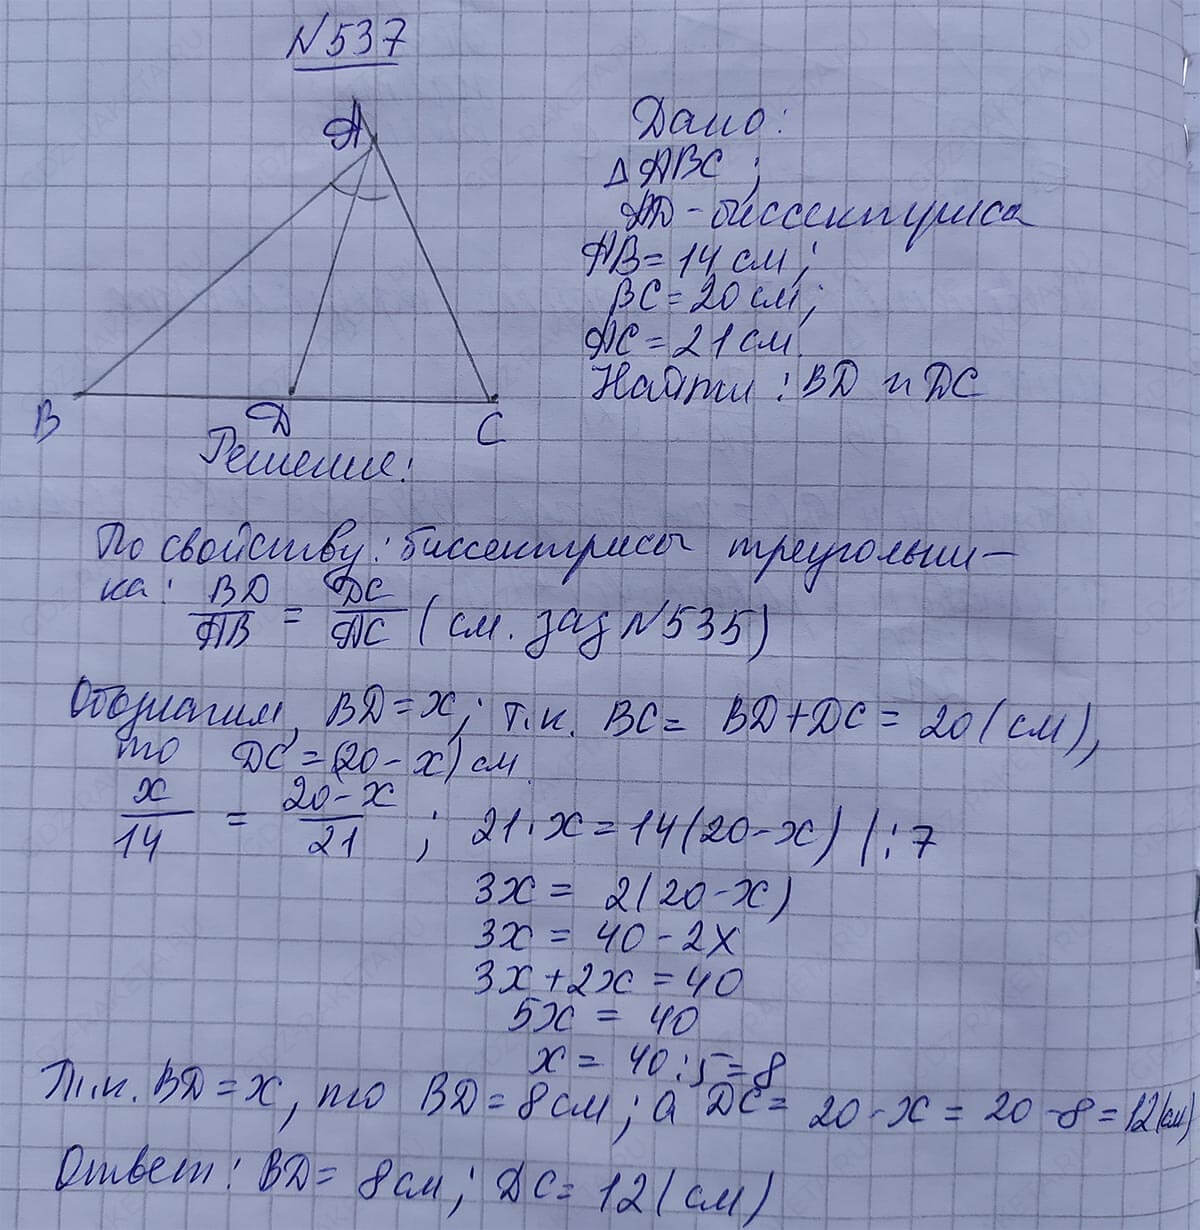 №537
A
B
D
C
Дано:
Δ ABC ;
AD - биссектриса
AB = 14 см ;
BC = 20 см ;
AC = 21 см.
Найти : BD и DC
Решение:
По свойству : биссектрисы треугольни-
ка: BD/AB = DC/AC (см. зад №535)
Обозначим BD = x ; т.к. BC = BD + DC = 20 (см),
то DC = (20 - x) см.
x/14 = 20-x/21 ; 21 · x = 14(20-x) |: 7
3x = 2(20-x)
3x = 40 - 2x
3x + 2x = 40
5x = 40
x = 40 : 5 = 8
Т.к. BD = x, то BD = 8 см ; а DC = 20 - x = 20 - 8 = 12 (см)
Ответ : BD = 8 см ; DC = 12 (см)